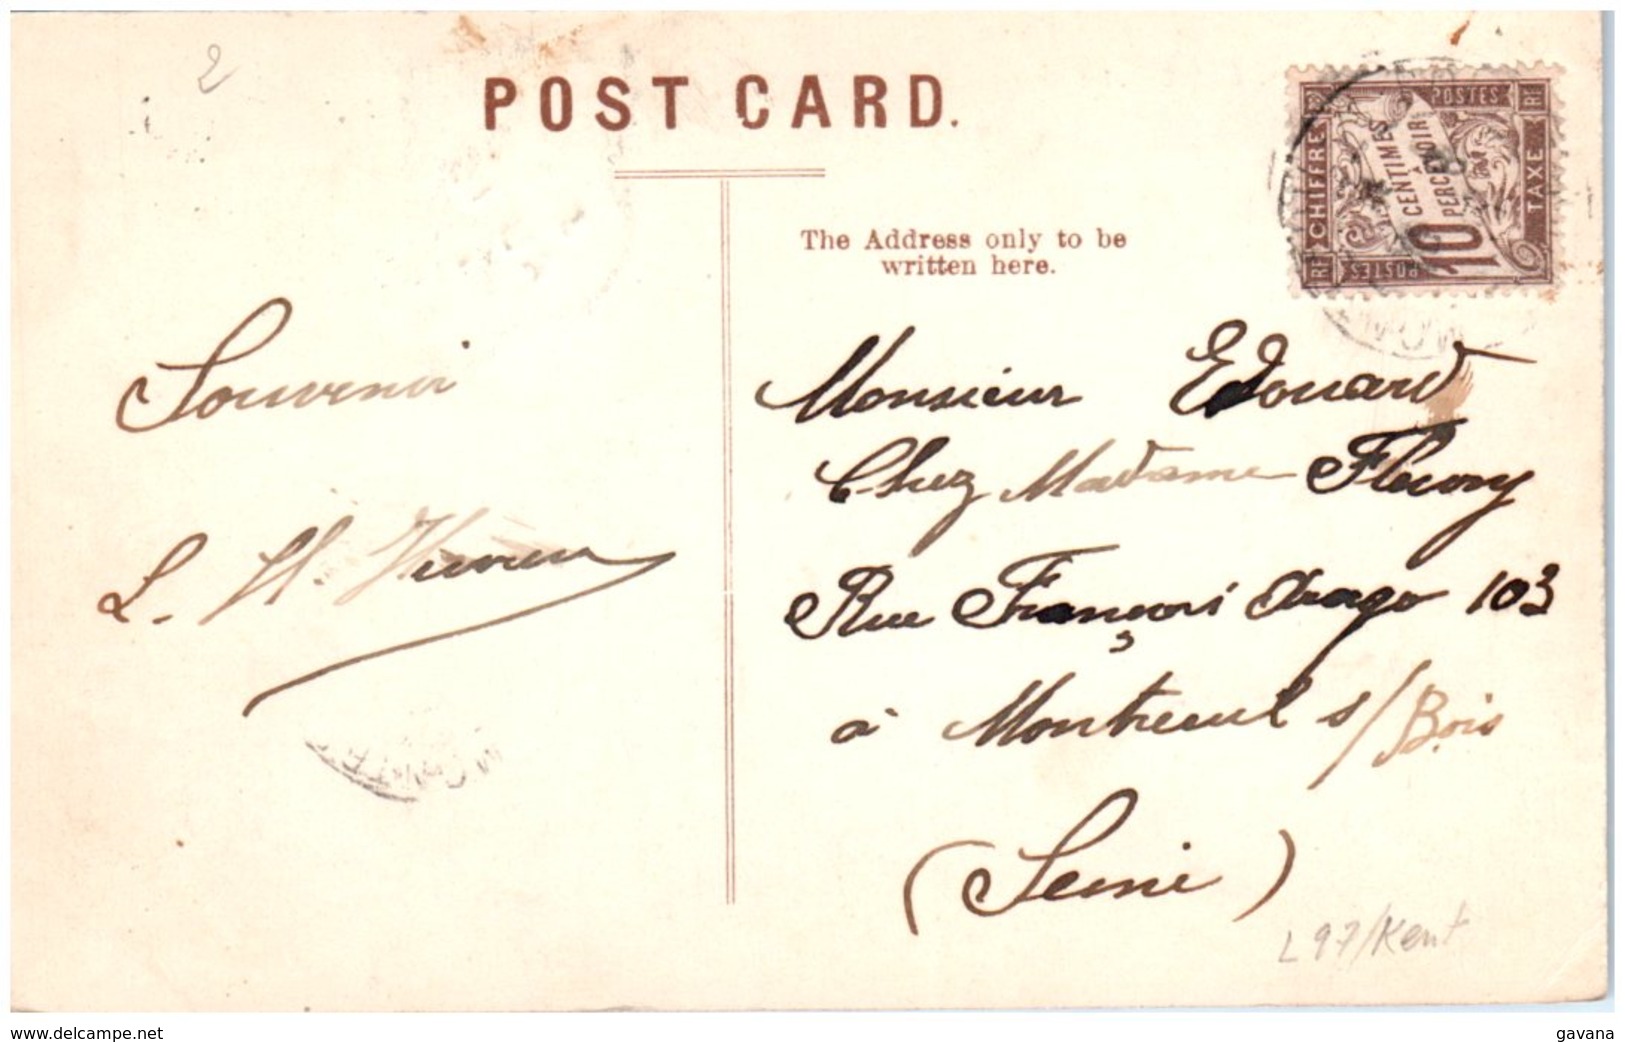 2
POST CARD.
The Address only to be
written here.
POSTES
RF
CHIFFRE
TAXE
10 CENTIMES
À
PERCEVOIR
RF
POSTES
Souvenir
L. H.
Monsieur Edouard
Chez Madame Fleury
Rue François Arago 103
à Montreuil s/Bois
(Seine)
L97/Kent
www.delcampe.net
gavana